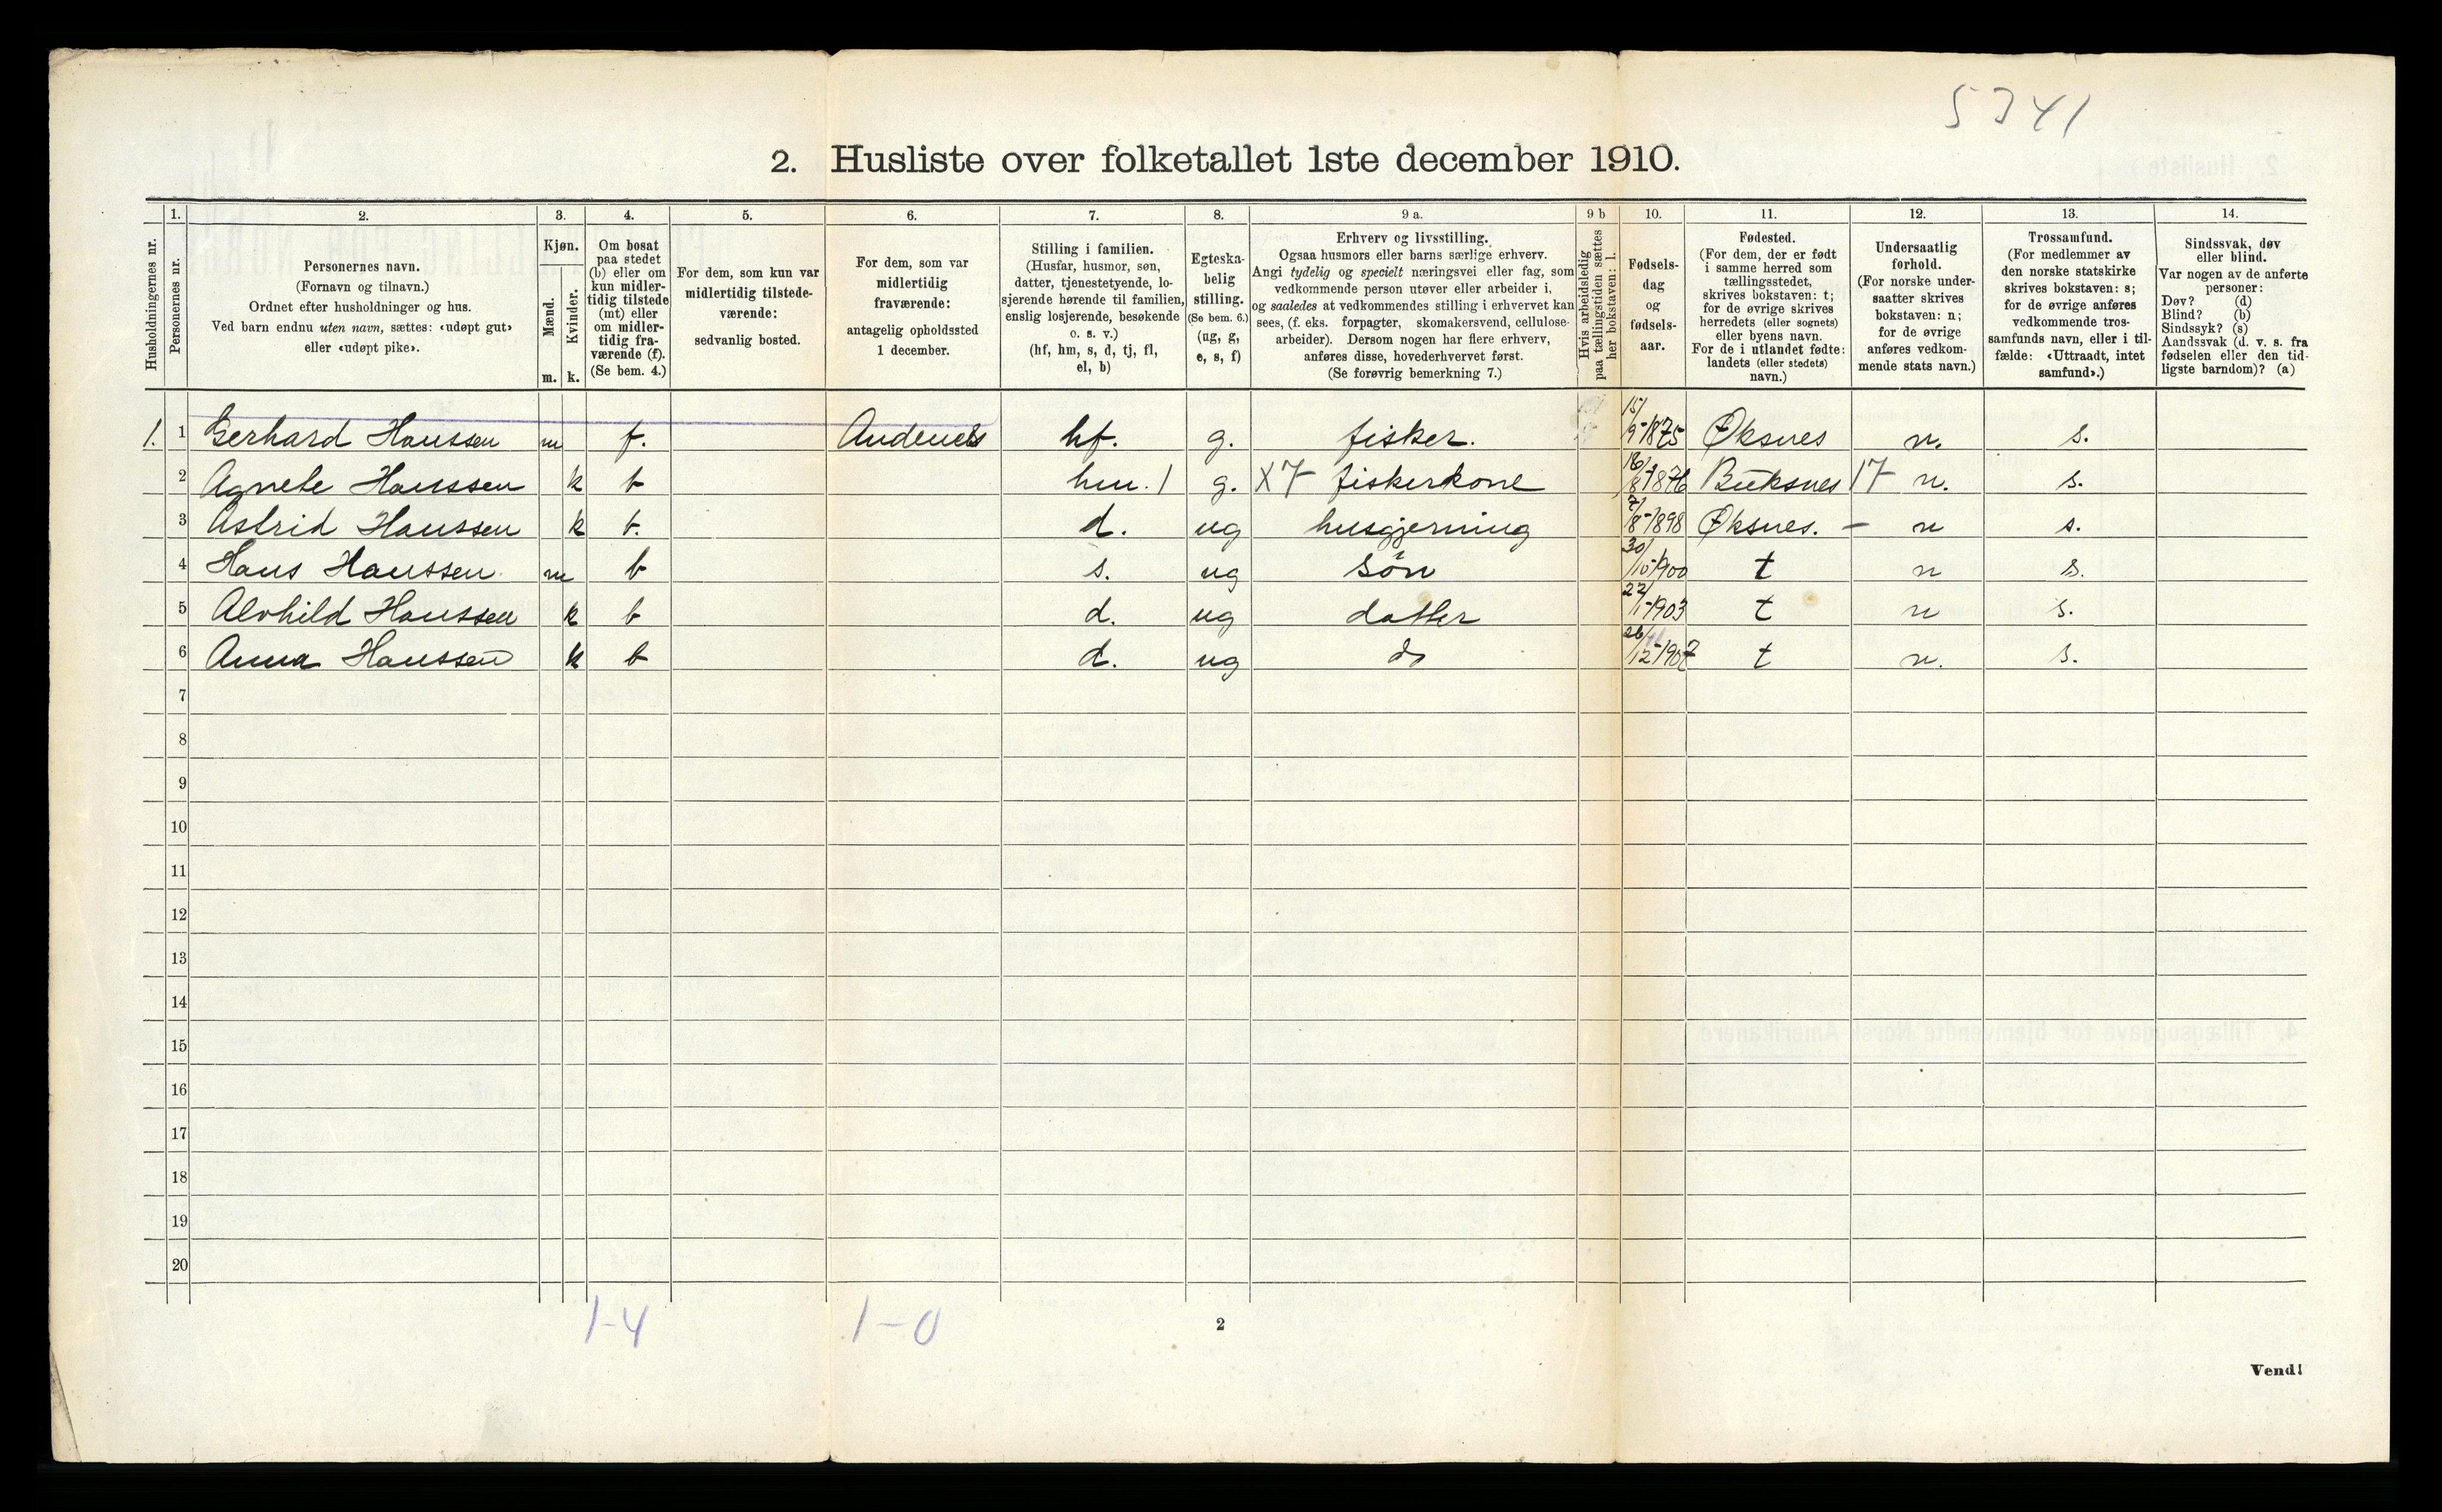 5341
2. Husliste over folketallet 1ste december 1910.
Husholdningernes nr.
1. Personernes nr.
2. Personernes navn.
(Fornavn og tilnavn.)
Ordnet efter husholdninger og hus.
Ved barn endnu uten navn, sættes: «udøpt gut»
eller «udøpt pike».
3. Kjøn.
Mænd. m.
Kvinder. k.
4. Om bosat
paa stedet
(b) eller om
kun midler-
tidig tilstede
(mt) eller
om midler-
tidig fra-
værende (f).
(Se bem. 4.)
5. For dem, som kun var
midlertidig tilstede-
værende:
sedvanlig bosted.
6. For dem, som var
midlertidig
fraværende:
antagelig opholdssted
1 december.
7. Stilling i familien.
(Husfar, husmor, søn,
datter, tjenestetyende, lo-
sjerende hørende til familien,
enslig losjerende, besøkende
o. s. v.)
(hf, hm, s, d, tj, fl,
el, b)
8. Egteska-
belig
stilling.
(Se bem. 6.)
(ug, g,
e, s, f)
9 a. Erhverv og livsstilling.
Ogsaa husmors eller barns særlige erhverv.
Angi tydelig og specielt næringsvei eller fag, som
vedkommende person utøver eller arbeider i,
og saaledes at vedkommendes stilling i erhvervet kan
sees, (f. eks. forpagter, skomakersvend, cellulose-
arbeider). Dersom nogen har flere erhverv,
anføres disse, hovederhvervet først.
(Se forøvrig bemerkning 7.)
9 b Hvis arbeidsledig
paa tællingstiden sættes
her bokstaven: l.
10. Fødsels-
dag
og
fødsels-
aar.
11. Fødested.
(For dem, der er født
i samme herred som
tællingsstedet,
skrives bokstaven: t;
for de øvrige skrives
herredets (eller sognets)
eller byens navn.
For de i utlandet fødte:
landets (eller stedets)
navn.)
12. Undersaatlig
forhold.
(For norske under-
saatter skrives
bokstaven: n;
for de øvrige
anføres vedkom-
mende stats navn.)
13. Trossamfund.
(For medlemmer av
den norske statskirke
skrives bokstaven: s;
for de øvrige anføres
vedkommende tros-
samfunds navn, eller i til-
fælde: «Uttraadt, intet
samfund».)
14. Sindssvak, døv
eller blind.
Var nogen av de anførte
personer:
Døv? (d)
Blind? (b)
Sindssyk? (s)
Aandssvak (d. v. s. fra
fødselen eller den tid-
ligste barndom)? (a)
1. 1 Gerhard Hanssen m f. Andenes hf. g. fisker. 15/9-1875 Øksnes n. s.
2 Agnete Hanssen k b hm. 1 g. X7 fiskerkone 1876 Buksnes 17 n. s.
3 Astrid Hanssen k b. d. ug husgjerning 7/8-1898 Øksnes. - n s.
4 Hans Hanssen. m b s. ug søn 30/10-1900 t n s.
5 Alvhild Hanssen k b d. ug datter 22/1-1903 t n s.
6 Anna Hanssen k b d. ug do 26/12-1907 t n. s.
7
8
9
10
11
12
13
14
15
16
17
18
19
20
1-4 1-0
2
Vend!